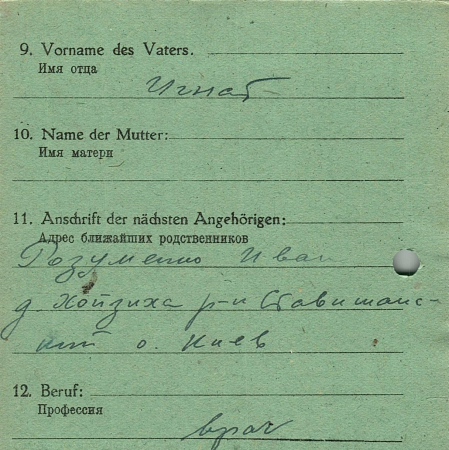 9. Vorname des Vaters.
Имя отца
Игнат
10. Name der Mutter:
Имя матери
11. Anschrift der nächsten Angehörigen:
Адрес ближайших родственников
Розуменко Иван
д. р-н
о. Киев
12. Beruf:
Профессия
врач